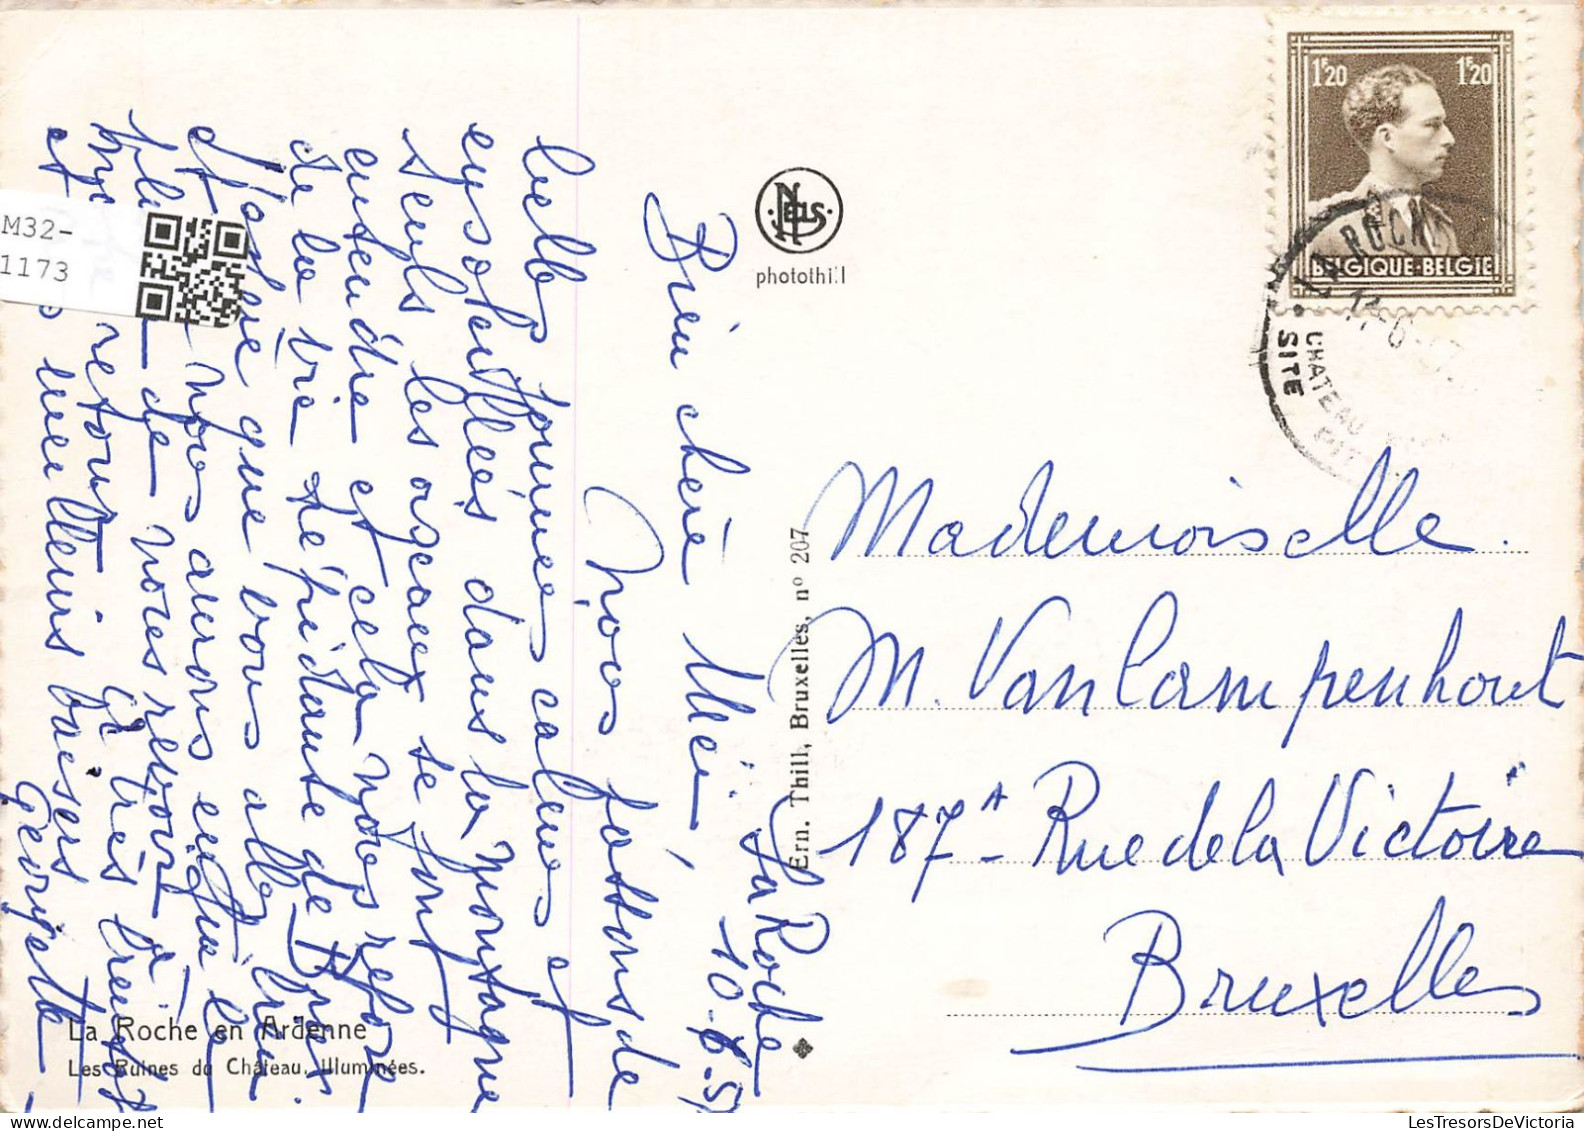 La Roche
10-6-5
Bien chère Mlle,
Nous passons de
belles journées calmes et
ensoleillées dans la montagne
seuls les oiseaux se font
entendre et cela nous repose
de la vie trépidante de
J'espère que vous allez bien
et nous avons
de nous revoir à
retour très
et meilleurs baisers
Georgette
La Roche en Ardenne
Les Ruines du Château, Illuminées.
M32-
1173
NELS
photothill
Ern. Thill, Bruxelles, nº 207
1F20 1F20
BELGIQUE·BELGIE
LA ROCHE
11-6
SITE
CHATEAU
Mademoiselle
M. Van Campenhout
187A - Rue de la Victoire
Bruxelles
LesTresorsDeVictoria